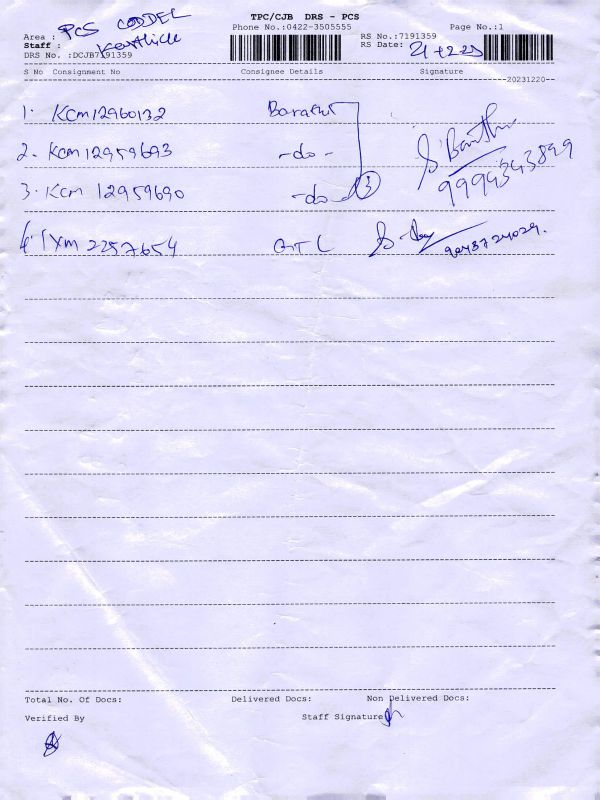 TPC/CJB DRS - PCS
Phone No.:0422-3505555
Page No.:1
Area : PCS CODDEL
RS No.:7191359
Staff : Karthick
RS Date: 21-12-23
DRS No. :DCJB7191359
S No Consignment No Consignee Details Signature
20231220--
1. KCM12960132 Barathi
2. KCM 12959693 -do-
9994343899
3. KCM 12959690 -do- 3
4. IXM 2257654 GTL
9043724029.
Total No. Of Docs: Delivered Docs: Non Delivered Docs:
Verified By Staff Signature